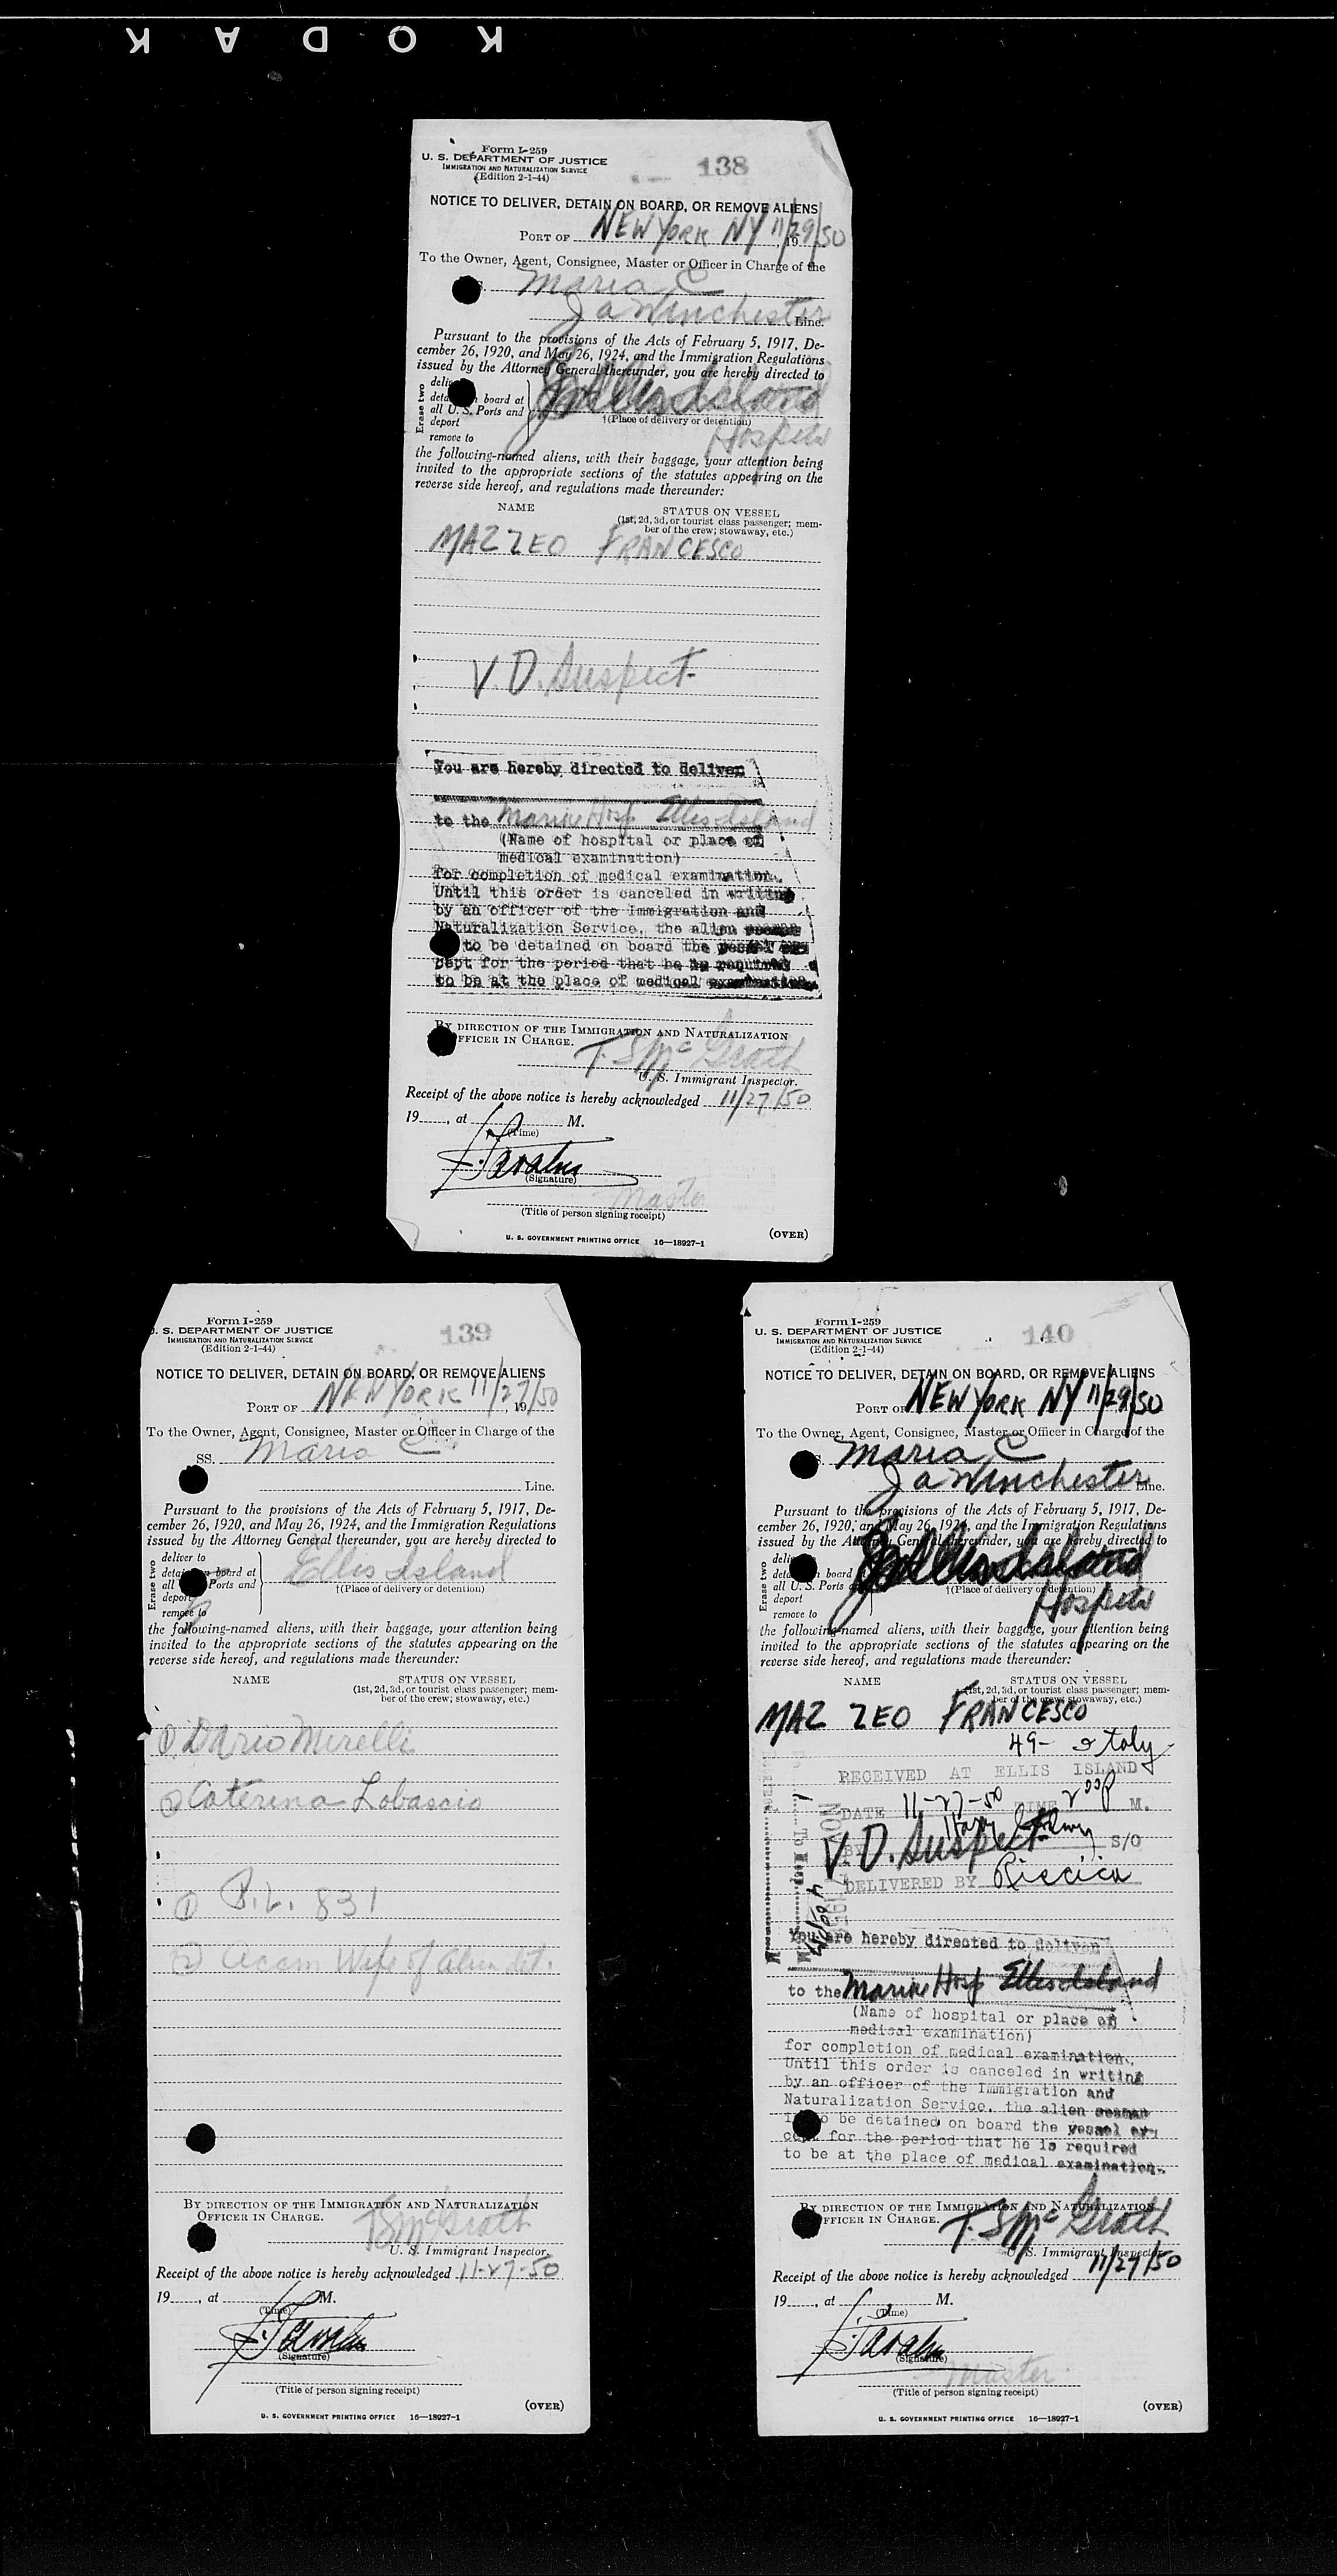 KODAK
Form I-259
U. S. DEPARTMENT OF JUSTICE
IMMIGRATION AND NATURALIZATION SERVICE
(Edition 2-1-44)
138
NOTICE TO DELIVER, DETAIN ON BOARD, OR REMOVE ALIENS
PORT OF NEW YORK NY 11/29/50, 19
To the Owner, Agent, Consignee, Master or Officer in Charge of the
S. Maria C
Ja Winchester Line.
Pursuant to the provisions of the Acts of February 5, 1917, De-
cember 26, 1920, and May 26, 1924, and the Immigration Regulations
issued by the Attorney General thereunder, you are hereby directed to
Erase two
deli
deta board at
all U. S. Ports and
deport
remove to
Ellis Island
†(Place of delivery or detention)
Hospital
the following-named aliens, with their baggage, your attention being
invited to the appropriate sections of the statutes appearing on the
reverse side hereof, and regulations made thereunder:
NAME
STATUS ON VESSEL
(1st, 2d, 3d, or tourist class passenger; mem-
ber of the crew; stowaway, etc.)
MAZZEO FRANCESCO
V.D. Suspect-
You are hereby directed to deliver
to the Marine Hosp Ellis Island
(Name of hospital or place of
medical examination)
for completion of medical examination.
Until this order is canceled in writing
by an officer of the Immigration and
Naturalization Service, the alien seaman
to be detained on board the vessel ex-
cept for the period that he is required
to be at the place of medical examination.
BY DIRECTION OF THE IMMIGRATION AND NATURALIZATION
OFFICER IN CHARGE.
T. S. McGrath
U. S. Immigrant Inspector.
Receipt of the above notice is hereby acknowledged 11/27/50
19, at M.
(Time)
(Signature)
Master
(Title of person signing receipt)
(OVER)
U. S. GOVERNMENT PRINTING OFFICE 16—18927-1
Form I-259
U. S. DEPARTMENT OF JUSTICE
IMMIGRATION AND NATURALIZATION SERVICE
(Edition 2-1-44)
139
NOTICE TO DELIVER, DETAIN ON BOARD, OR REMOVE ALIENS
PORT OF NEW YORK 11/27/50, 19
To the Owner, Agent, Consignee, Master or Officer in Charge of the
SS. Maria C.
Line.
Pursuant to the provisions of the Acts of February 5, 1917, De-
cember 26, 1920, and May 26, 1924, and the Immigration Regulations
issued by the Attorney General thereunder, you are hereby directed to
Erase two
deliver to
detain on board at
all Ports and
deport
remove to
Ellis Island
†(Place of delivery or detention)
the following-named aliens, with their baggage, your attention being
invited to the appropriate sections of the statutes appearing on the
reverse side hereof, and regulations made thereunder:
NAME
STATUS ON VESSEL
(1st, 2d, 3d, or tourist class passenger; mem-
ber of the crew; stowaway, etc.)
① Dario Mirelli
② Caterina Lobascio
① P.L. 831
② Accom Wife of alien det.
BY DIRECTION OF THE IMMIGRATION AND NATURALIZATION
OFFICER IN CHARGE.
McGrath
U. S. Immigrant Inspector.
Receipt of the above notice is hereby acknowledged 11-27-50
19, at M.
(Time)
(Signature)
(Title of person signing receipt)
(OVER)
U. S. GOVERNMENT PRINTING OFFICE 16—18927-1
Form I-259
U. S. DEPARTMENT OF JUSTICE
IMMIGRATION AND NATURALIZATION SERVICE
(Edition 2-1-44)
140
NOTICE TO DELIVER, DETAIN ON BOARD, OR REMOVE ALIENS
PORT OF NEW YORK NY 11/29/50
To the Owner, Agent, Consignee, Master or Officer in Charge of the
S. Maria C
Ja Winchester Line.
Pursuant to the provisions of the Acts of February 5, 1917, De-
cember 26, 1920, and May 26, 1924, and the Immigration Regulations
issued by the Attorney General thereunder, you are hereby directed to
Erase two
deli
deta board
all U. S. Ports
deport
remove to
Ellis Island
†(Place of delivery or detention)
Hospital
the following-named aliens, with their baggage, your attention being
invited to the appropriate sections of the statutes appearing on the
reverse side hereof, and regulations made thereunder:
NAME
STATUS ON VESSEL
(1st, 2d, 3d, or tourist class passenger; mem-
ber of the crew; stowaway, etc.)
MAZZEO FRANCESCO
49- Italy
RECEIVED AT ELLIS ISLAND
DATE 11-27-50 TIME 2 00 P M.
BY S/O
V.D. Suspect
DELIVERED BY
You are hereby directed to deliver
to the Marine Hosp Ellis Island
(Name of hospital or place of
medical examination)
for completion of medical examination.
Until this order is canceled in writing
by an officer of the Immigration and
Naturalization Service, the alien seaman
to be detained on board the vessel ex-
cept for the period that he is required
to be at the place of medical examination.
BY DIRECTION OF THE IMMIGRATION AND NATURALIZATION
OFFICER IN CHARGE.
T. S. McGrath
U. S. Immigrant Inspector.
Receipt of the above notice is hereby acknowledged 11/27/50
19, at M.
(Time)
(Signature)
Master
(Title of person signing receipt)
(OVER)
U. S. GOVERNMENT PRINTING OFFICE 16—18927-1